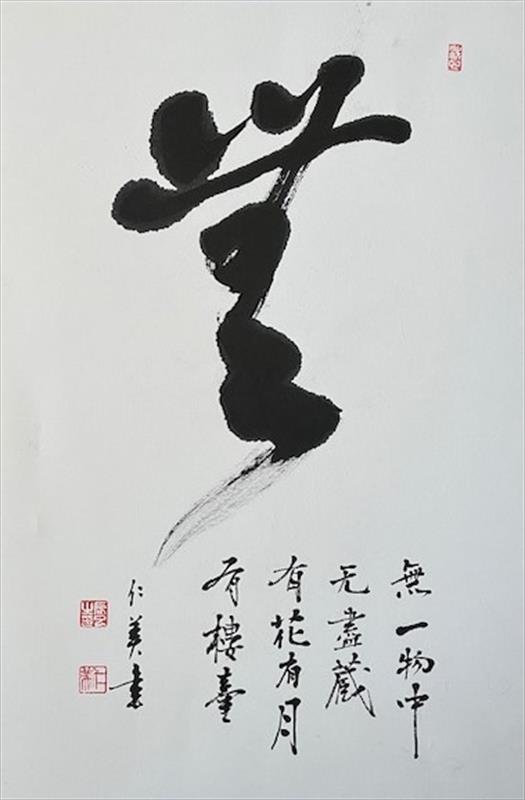 無
無一物中
无盡蔵
有花有月
有樓臺
仁美書